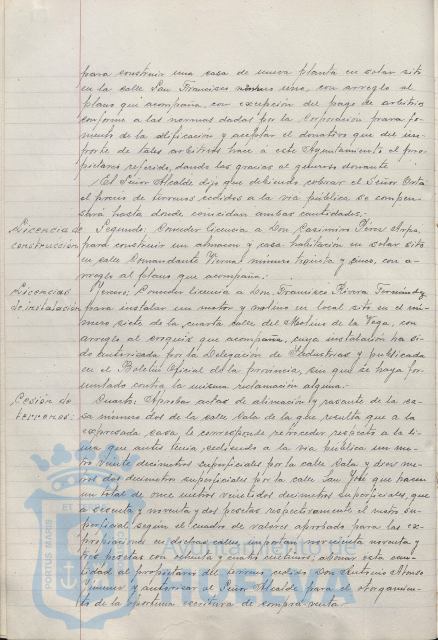 para construir una casa de nueva planta en solar sito
en la calle San Francisco número uno, con arreglo al
plano que acompaña, con excepción del pago de arbitrio
conforme a las normas dadas por la Corporación para fo-
mento de la edificación y aceptar el donativo que del im-
porte de tales arbitrios hace a este Ayuntamiento el pro-
pietario referido, dando las gracias al generoso donante
El Señor Alcalde dijo que debiendo cobrar el Señor
el precio de terrenos cedidos a la vía pública se compen-
sara hasta donde coincidan ambas cantidades.
Licencia de
construcción
Segundo: Conceder licencia a Don Casimiro Pérez
para construir un almacen y casa habitación en solar sito
en calle Comandante Vierna número treinta y cinco, con a-
rreglo al plano que acompaña.
Licencias
de instalación
Tercero: Conceder licencia a Don Francisco Rivera Fernández
para instalar un motor y molino en local sito en el nú-
mero siete de la cuarta calle del Molino de la Vega, con
arreglo al croquis que acompaña, cuya instalación ha si-
do autorizada por la Delegación de Industrias y publicada
en el Boletín Oficial de la provincia, sin que se haya for-
mulado contra la misma reclamación alguna.
Cesión de
terrenos:
Cuarto: Aprobar actas de alineación y rasante de la ca-
sa número dos de la calle Sala de la que resulta que a la
expresada casa le corresponde retroceder respecto a la li-
nea que antes tenia, cediendo a la via pública un me-
tro veinte decimetros superficiales por la calle Sala y diez me-
tros dos decimetros superficiales por la calle San José que hacen
un total de once metros veintidos decimetros superficiales, que
a sesenta y noventa y dos pesetas respectivamente el metro su-
perficial según el cuadro de valores aprobado para las ex-
propiaciones en dichas calles, importan novecienta noventa y
tres pesetas con ochenta y cuatro centimos; abonar esta can-
tidad al propietario del terreno cedido Don Antonio Alonso
Jimenez y autorizar al Señor Alcalde para el otorgamien-
to de la oportuna escritura de compra-venta
PORTUS MARIS ET
Ayuntamiento de
HUELVA